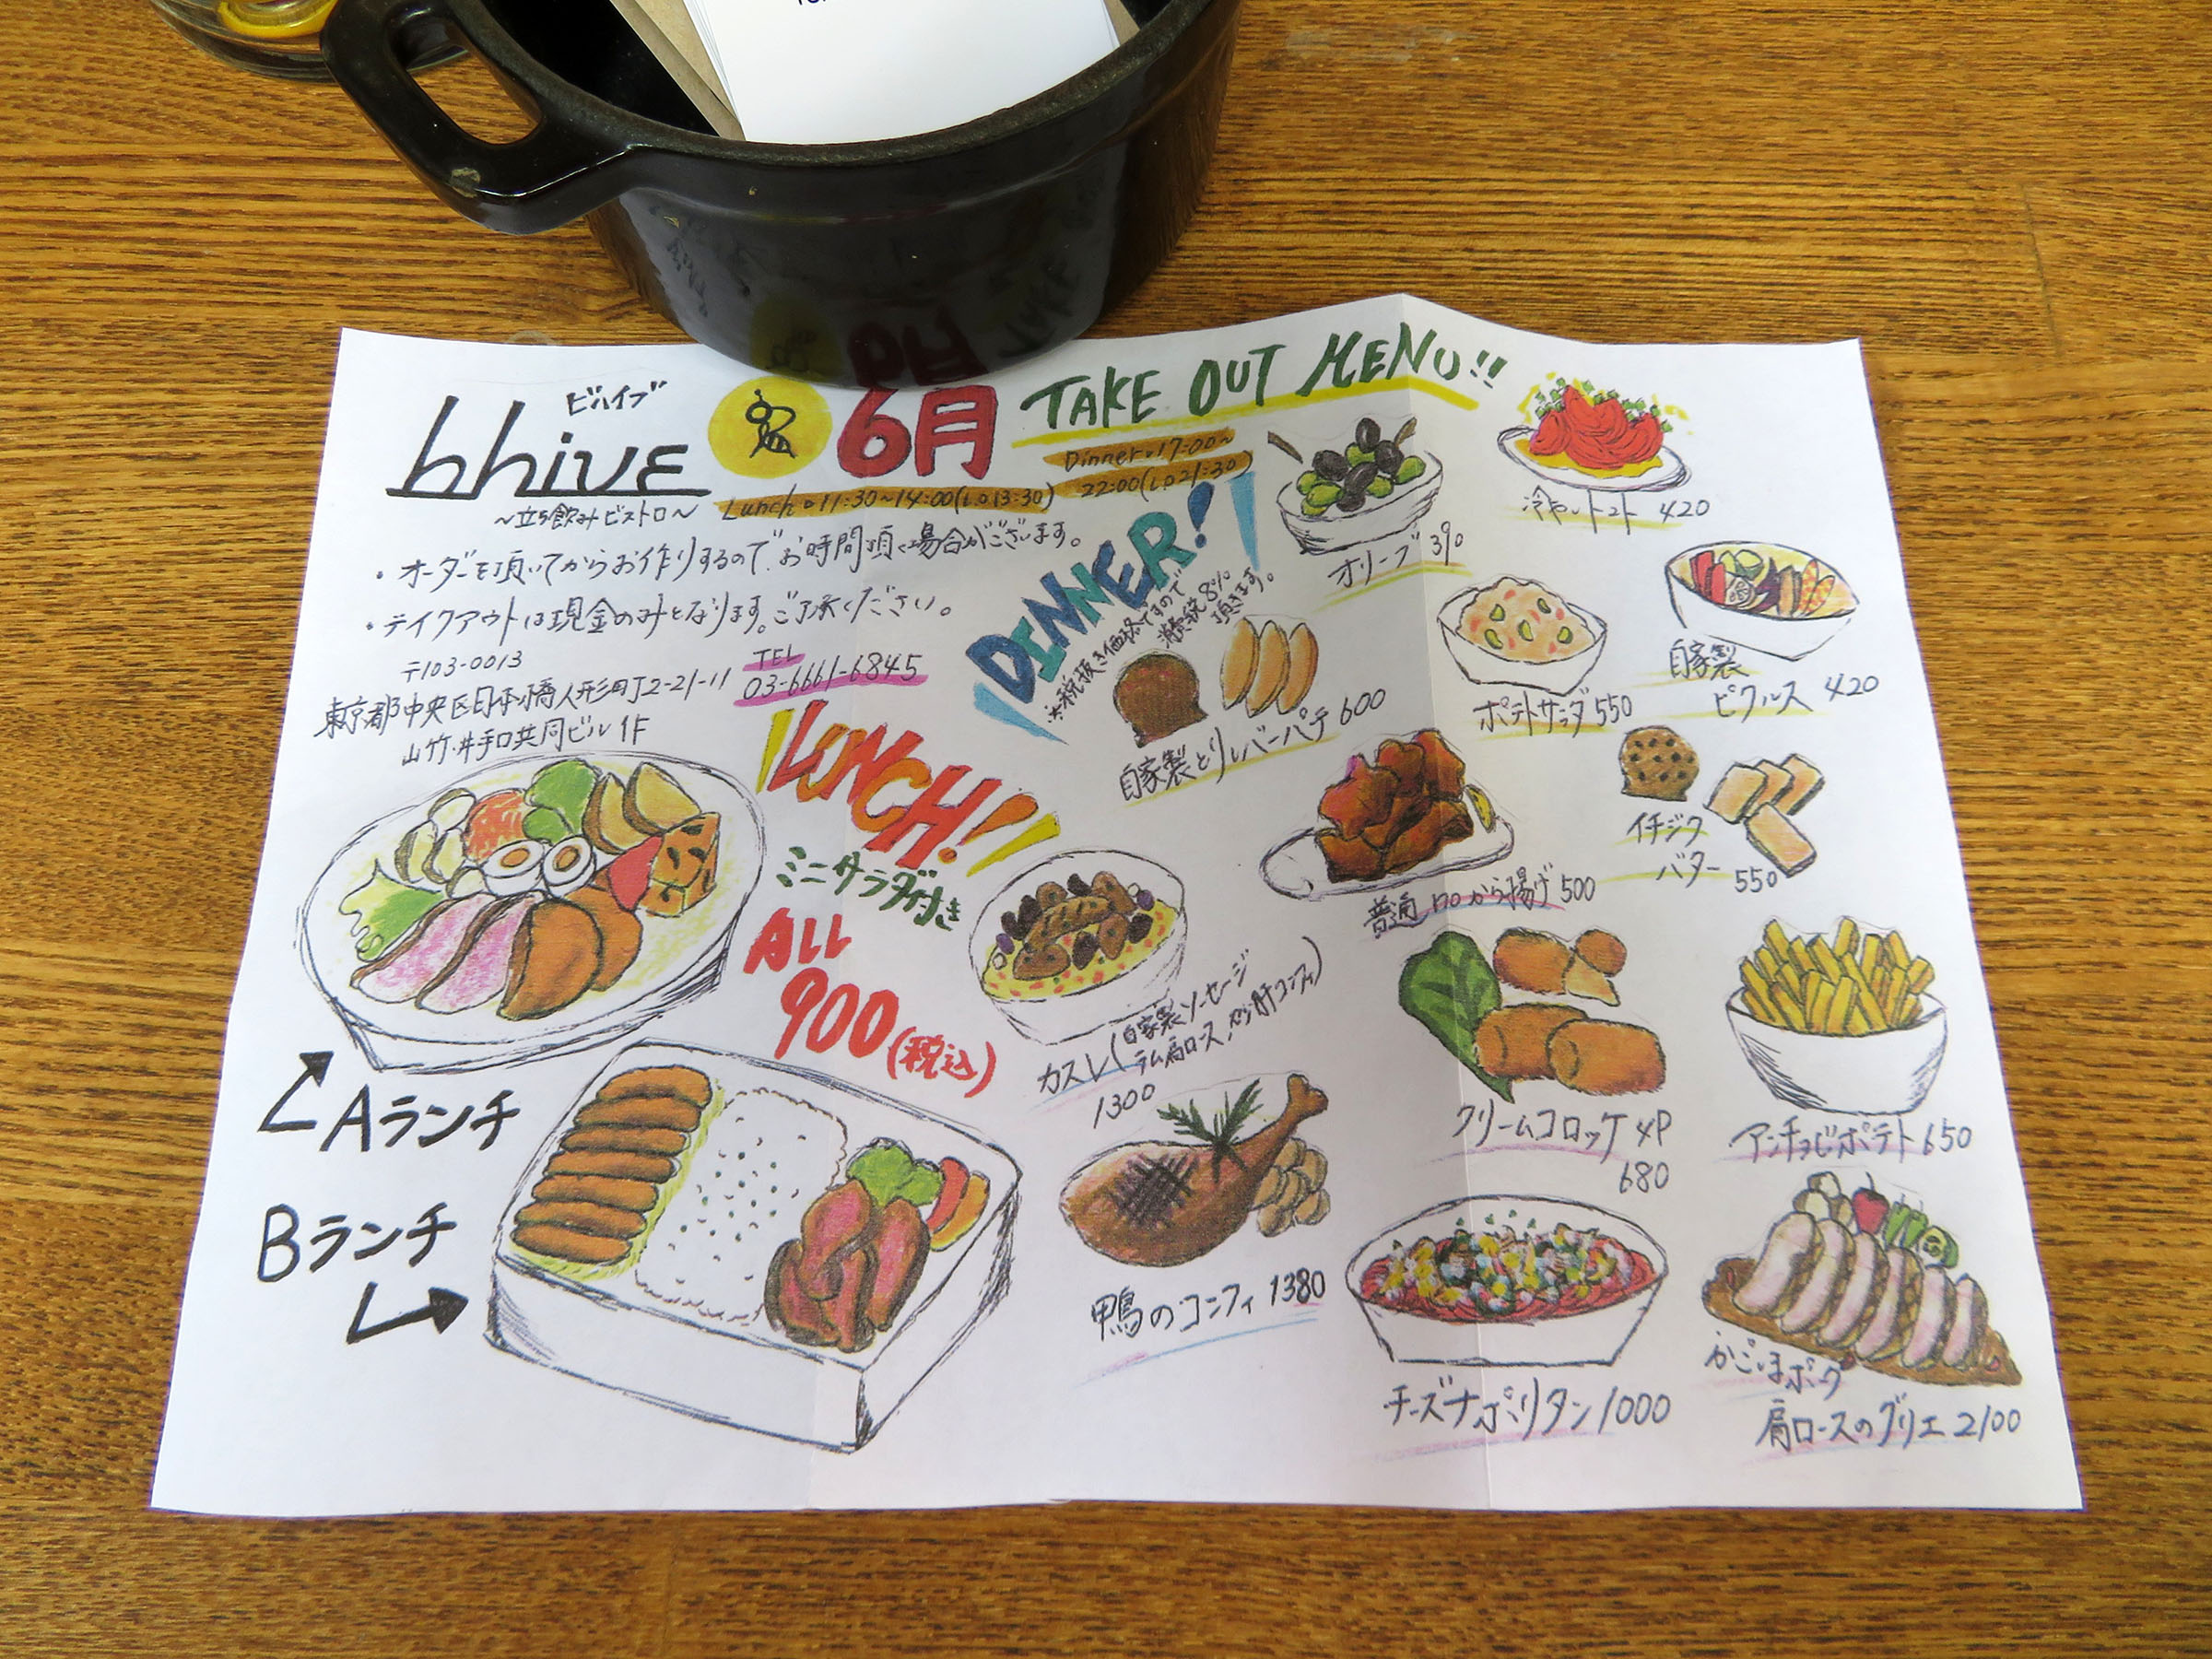 ビハイブ
bhive
～立ち飲みビストロ～
6月
TAKE OUT MENU!!
Lunch 11:30～14:00(L.O13:30)
Dinner 17:00～
22:00(L.O21:30)
・オーダーを頂いてからお作りするので、お時間頂く場合がございます。
・テイクアウトは現金のみとなります。ご了承ください。
〒103-0013
東京都中央区日本橋人形町2-21-11
山竹・井手口共同ビル1F
TEL
03-6661-6845
LUNCH!
ミニサラダ付き
ALL
900(税込)
Aランチ
Bランチ
DINNER!
※税抜き価格ですので
消費税8%
頂きます。
オリーブ 390
冷やしトマト 420
自家製とりレバーパテ 600
ポテトサラダ 550
自家製
ピクルス 420
普通のから揚げ 500
イチジク
バター 550
カスレ(自家製ソーセージ
ラム肩ロース、砂肝コンフィ)
1300
クリームコロッケ4P
680
アンチョビポテト 650
鴨のコンフィ 1380
チーズナポリタン 1000
かごしまポーク
肩ロースのグリエ 2100